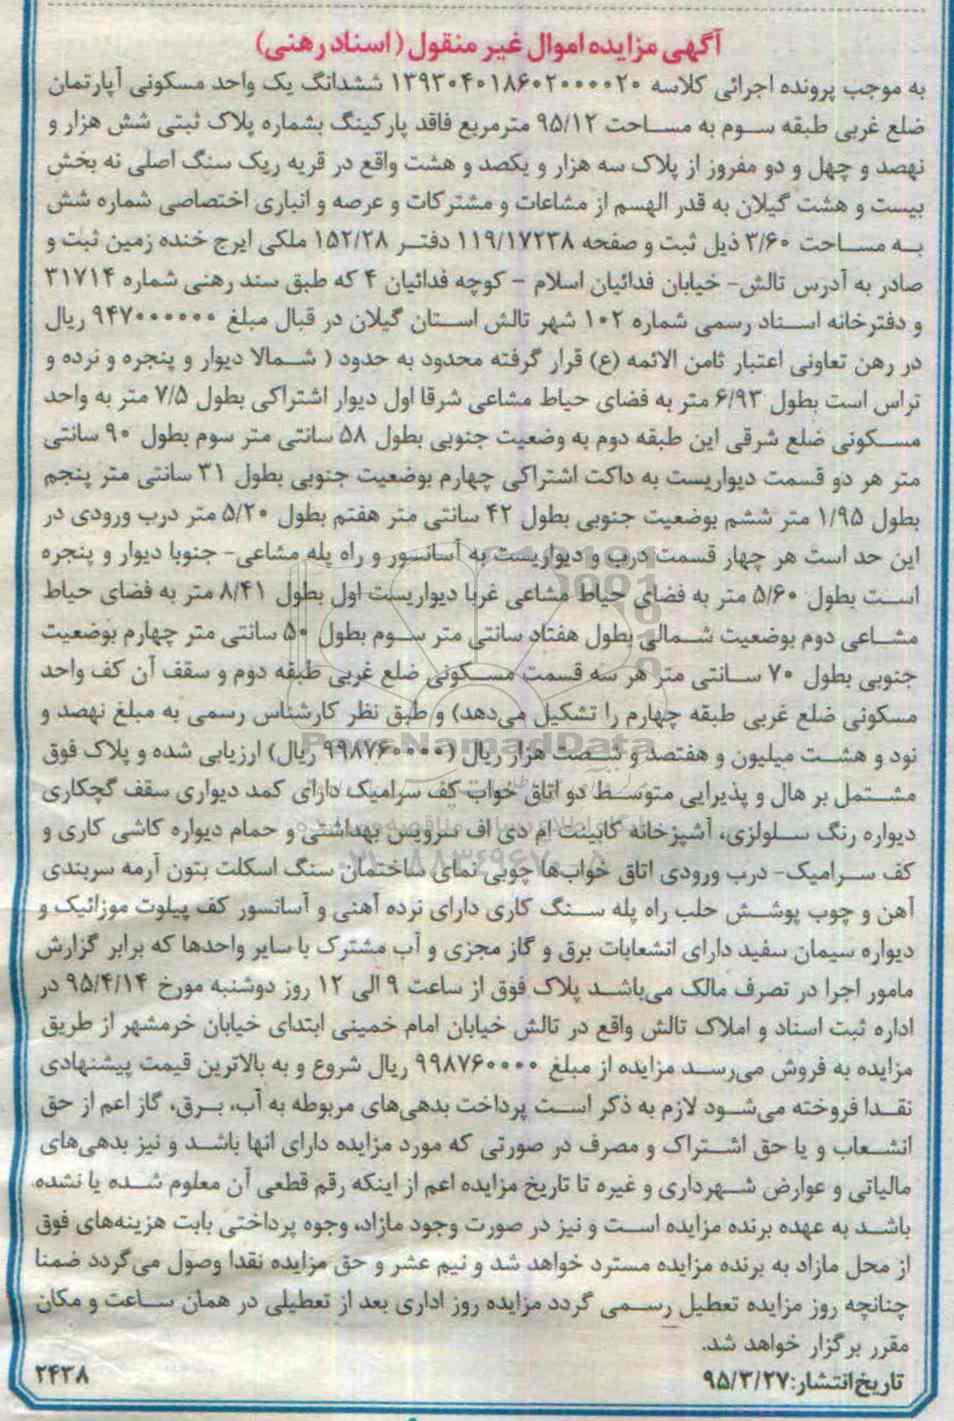 آگهی مزایده اموال غیر منقول (اسناد رهنی)
به موجب پرونده اجرائی کلاسه ۱۳۹۳۰۴۰۱۸۶۰۲۰۰۰۰۲۰ ششدانگ یک واحد مسکونی آپارتمان
ضلع غربی طبقه سوم به مساحت ۹۵/۱۲ مترمربع فاقد پارکینگ بشماره پلاک ثبتی شش هزار و
نهصد و چهل و دو مفروز از پلاک سه هزار و یکصد و هشت واقع در قریه ریک سنگ اصلی نه بخش
بیست و هشت گیلان به قدر الهسم از مشاعات و مشترکات و عرصه و انباری اختصاصی شماره شش
به مساحت ۳/۶۰ ذیل ثبت و صفحه ۱۱۹/۱۷۲۳۸ دفتر ۱۵۲/۲۸ ملکی ایرج خنده زمین ثبت و
صادر به آدرس تالش- خیابان فدائیان اسلام - کوچه فدائیان ۴ که طبق سند رهنی شماره ۳۱۷۱۴
و دفترخانه اسناد رسمی شماره ۱۰۲ شهر تالش استان گیلان در قبال مبلغ ۹۴۷۰۰۰۰۰۰ ریال
در رهن تعاونی اعتبار ثامن الائمه (ع) قرار گرفته محدود به حدود ( شمالا دیوار و پنجره و نرده و
تراس است بطول ۶/۹۳ متر به فضای حیاط مشاعی شرقا اول دیوار اشتراکی بطول ۷/۵ متر به واحد
مسکونی ضلع شرقی این طبقه دوم به وضعیت جنوبی بطول ۵۸ سانتی متر سوم بطول ۹۰ سانتی
متر هر دو قسمت دیواریست به داکت اشتراکی چهارم بوضعیت جنوبی بطول ۳۱ سانتی متر پنجم
بطول ۱/۹۵ متر ششم بوضعیت جنوبی بطول ۴۲ سانتی متر هفتم بطول ۵/۲۰ متر درب ورودی در
این حد است هر چهار قسمت درب و دیواریست به آسانسور و راه پله مشاعی- جنوبا دیوار و پنجره
است بطول ۵/۶۰ متر به فضای حیاط مشاعی غربا دیواریست اول بطول ۸/۴۱ متر به فضای حیاط
مشاعی دوم بوضعیت شمالی بطول هفتاد سانتی متر سوم بطول ۵۰ سانتی متر چهارم بوضعیت
جنوبی بطول ۷۰ سانتی متر هر سه قسمت مسکونی ضلع غربی طبقه دوم و سقف آن کف واحد
مسکونی ضلع غربی طبقه چهارم را تشکیل می‌دهد) و طبق نظر کارشناس رسمی به مبلغ نهصد و
نود و هشت میلیون و هفتصد و شصت هزار ریال (۹۹۸۷۶۰۰۰۰ ریال) ارزیابی شده و پلاک فوق
مشتمل بر هال و پذیرایی متوسط دو اتاق خواب کف سرامیک دارای کمد دیواری سقف گچکاری
دیواره رنگ سلولزی، آشپزخانه کابینت ام دی اف سرویس بهداشتی و حمام دیواره کاشی کاری و
کف سرامیک- درب ورودی اتاق خواب‌ها چوبی نمای ساختمان سنگ اسکلت بتون آرمه سربندی
آهن و چوب پوشش حلب راه پله سنگ کاری دارای نرده آهنی و آسانسور کف پیلوت موزائیک و
دیواره سیمان سفید دارای انشعابات برق و گاز مجزی و آب مشترک با سایر واحدها که برابر گزارش
مامور اجرا در تصرف مالک می‌باشد پلاک فوق از ساعت ۹ الی ۱۲ روز دوشنبه مورخ ۹۵/۴/۱۴ در
اداره ثبت اسناد و املاک تالش واقع در تالش خیابان امام خمینی ابتدای خیابان خرمشهر از طریق
مزایده به فروش می‌رسد مزایده از مبلغ ۹۹۸۷۶۰۰۰۰ ریال شروع و به بالاترین قیمت پیشنهادی
نقدا فروخته می‌شود لازم به ذکر است پرداخت بدهی‌های مربوطه به آب، برق، گاز اعم از حق
انشعاب و یا حق اشتراک و مصرف در صورتی که مورد مزایده دارای انها باشد و نیز بدهی‌های
مالیاتی و عوارض شهرداری و غیره تا تاریخ مزایده اعم از اینکه رقم قطعی آن معلوم شده یا نشده
باشد به عهده برنده مزایده است و نیز در صورت وجود مازاد، وجوه پرداختی بابت هزینه‌های فوق
از محل مازاد به برنده مزایده مسترد خواهد شد و نیم عشر و حق مزایده نقدا وصول می‌گردد ضمنا
چنانچه روز مزایده تعطیل رسمی گردد مزایده روز اداری بعد از تعطیلی در همان ساعت و مکان
مقرر برگزار خواهد شد.
تاریخ انتشار: ۹۵/۳/۲۷
۲۴۳۸
ParsNamadData